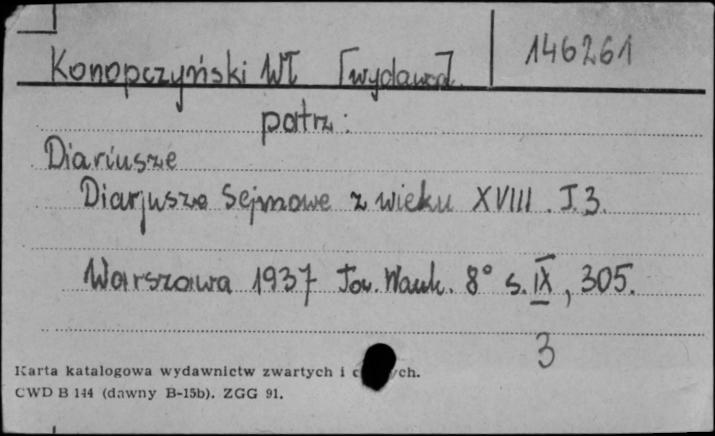 Konopczyński Wł [wydawca]. 146261
patrz:
Diariusze
Diarjusze Sejmowe z wieku XVIII. T.3.
Warszawa 1937 Tow. Nauk. 8° s. IX, 305.
3
Karta katalogowa wydawnictw zwartych i ch.
CWD B 144 (dawny B-15b). ZGG 91.